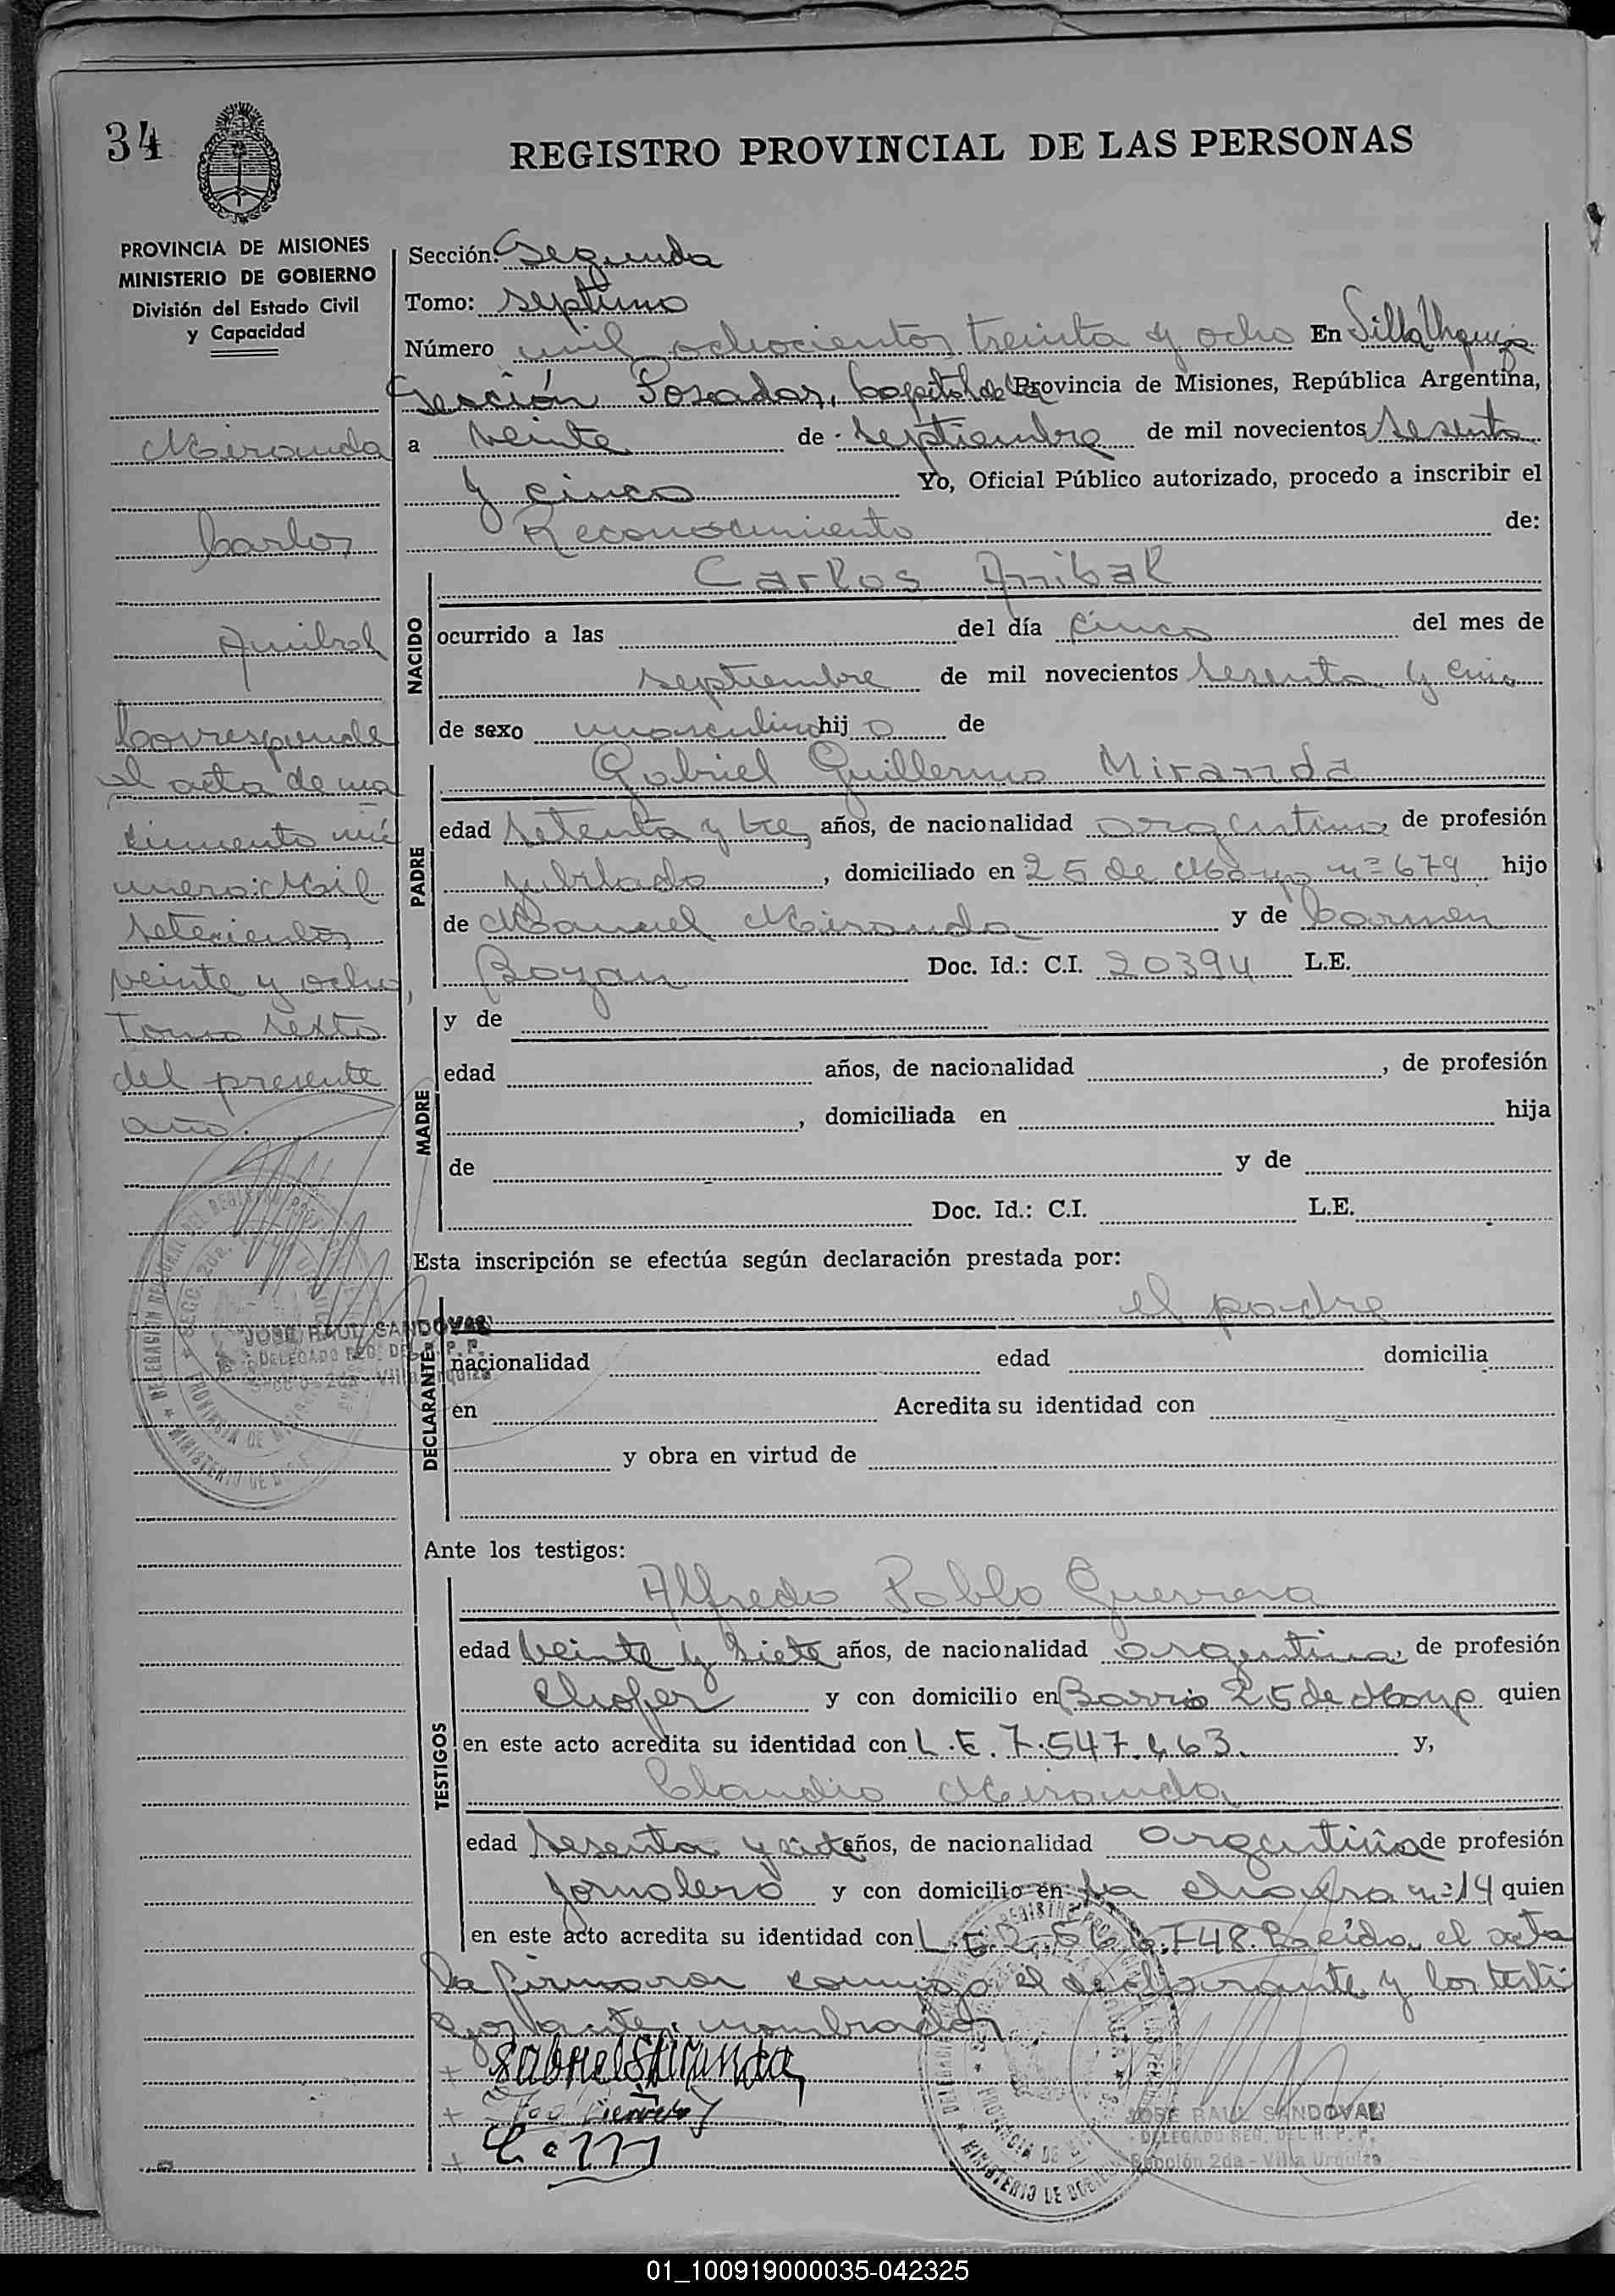 34
REGISTRO PROVINCIAL DE LAS PERSONAS
PROVINCIA DE MISIONES
MINISTERIO DE GOBIERNO
División del Estado Civil
y Capacidad
Miranda
Carlos
Anibal
Corresponde
el acta de na
cimiento nú
mero: Mil
setecientos
veinte y ocho,
Tomo sexto
del presente
año.
JOSE RAUL SANDOVAL
DELEGADO REG. DEL R. P. P.
Sección 2da - Villa Urquiza
Sección: Segunda
Tomo: septimo
Número mil ochocientos treinta y ocho En Villa Urquiza
Sección Posadas, Capital de la Provincia de Misiones, República Argentina,
a veinte de septiembre de mil novecientos sesenta
y cinco Yo, Oficial Público autorizado, procedo a inscribir el
Reconocimiento de:
NACIDO
Carlos Anibal
ocurrido a las del día cinco del mes de
septiembre de mil novecientos sesenta y cinco
de sexo masculino hijo de
PADRE
Gabriel Guillermo Miranda
edad setenta y tres años, de nacionalidad argentina, de profesión
jubilado, domiciliado en 25 de Mayo nº 679 hijo
de Manuel Miranda y de Carmen
Bozan Doc. Id.: C.I. 20394 L.E.
MADRE
y de
edad años, de nacionalidad , de profesión
, domiciliada en hija
de y de
Doc. Id.: C.I. L.E.
Esta inscripción se efectúa según declaración prestada por:
DECLARANTE
el padre
nacionalidad edad domicilia
en Acredita su identidad con
y obra en virtud de
Ante los testigos:
TESTIGOS
Alfredo Pablo Guerrero
edad veinte y siete años, de nacionalidad argentina, de profesión
chofer y con domicilio en Barrio 25 de Mayo quien
en este acto acredita su identidad con L.E. 7.547.463. y,
Claudio Miranda
edad sesenta y siete años, de nacionalidad argentina de profesión
jornalero y con domicilio en la chacra nº 14 quien
en este acto acredita su identidad con L.E. 748. Leída el acta
la firmaron conmigo el declarante y los testi
gos antes nombrados
+ Gabriel G Miranda
+
+ C. M
JOSE RAUL SANDOVAL
DELEGADO REG. DEL R. P. P.
Sección 2da - Villa Urquiza
01_100919000035-042325